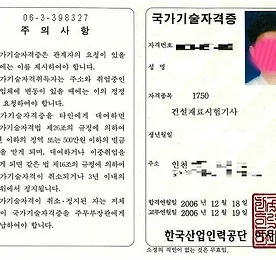 06-3-398327
주 의 사 항
가기술자격증은 관계자의 요청이 있을
에는 이를 제시하여야 합니다.
가기술자격취득자는 주소와 취업중인
업체에 변동이 있을 때에는 이의 정정
요청하여야 합니다.
가기술자격증을 타인에게 대여하면
가기술자격법 제26조의 규정에 의하여
년 이하의 징역 또는 500만원 이하의 벌금
을 받게 되며, 대여하거나 이중취업을
게 되면 같은 법 제16조의 규정에 의하여
가기술자격이 취소되거나 3년 이내의
위에서 정지됩니다.
가기술자격이 취소·정지된 자는 지체
이 국가기술자격증을 주무부장관에게
납하여야 합니다.
국가기술자격증
자격번호
성 명
자격종목 1750
건설재료시험기사
생년월일
주 소 인천
합격연월일 2006 년 12 월 18 일
교부연월일 2006 년 12 월 19 일
한국산업인력공단
소정의 직인이 없는 것은 무효임.